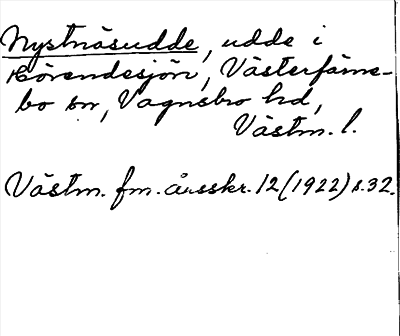 Nystnäsudde, udde i
Hörendesjön, Västerfärne-
bo sn, Vagnsbro hd,
Västm. l.
Västm. fm. årsskr. 12 (1922) s. 32.